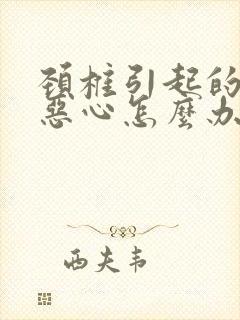 頸椎引起的
惡心怎麼办
西夫韦